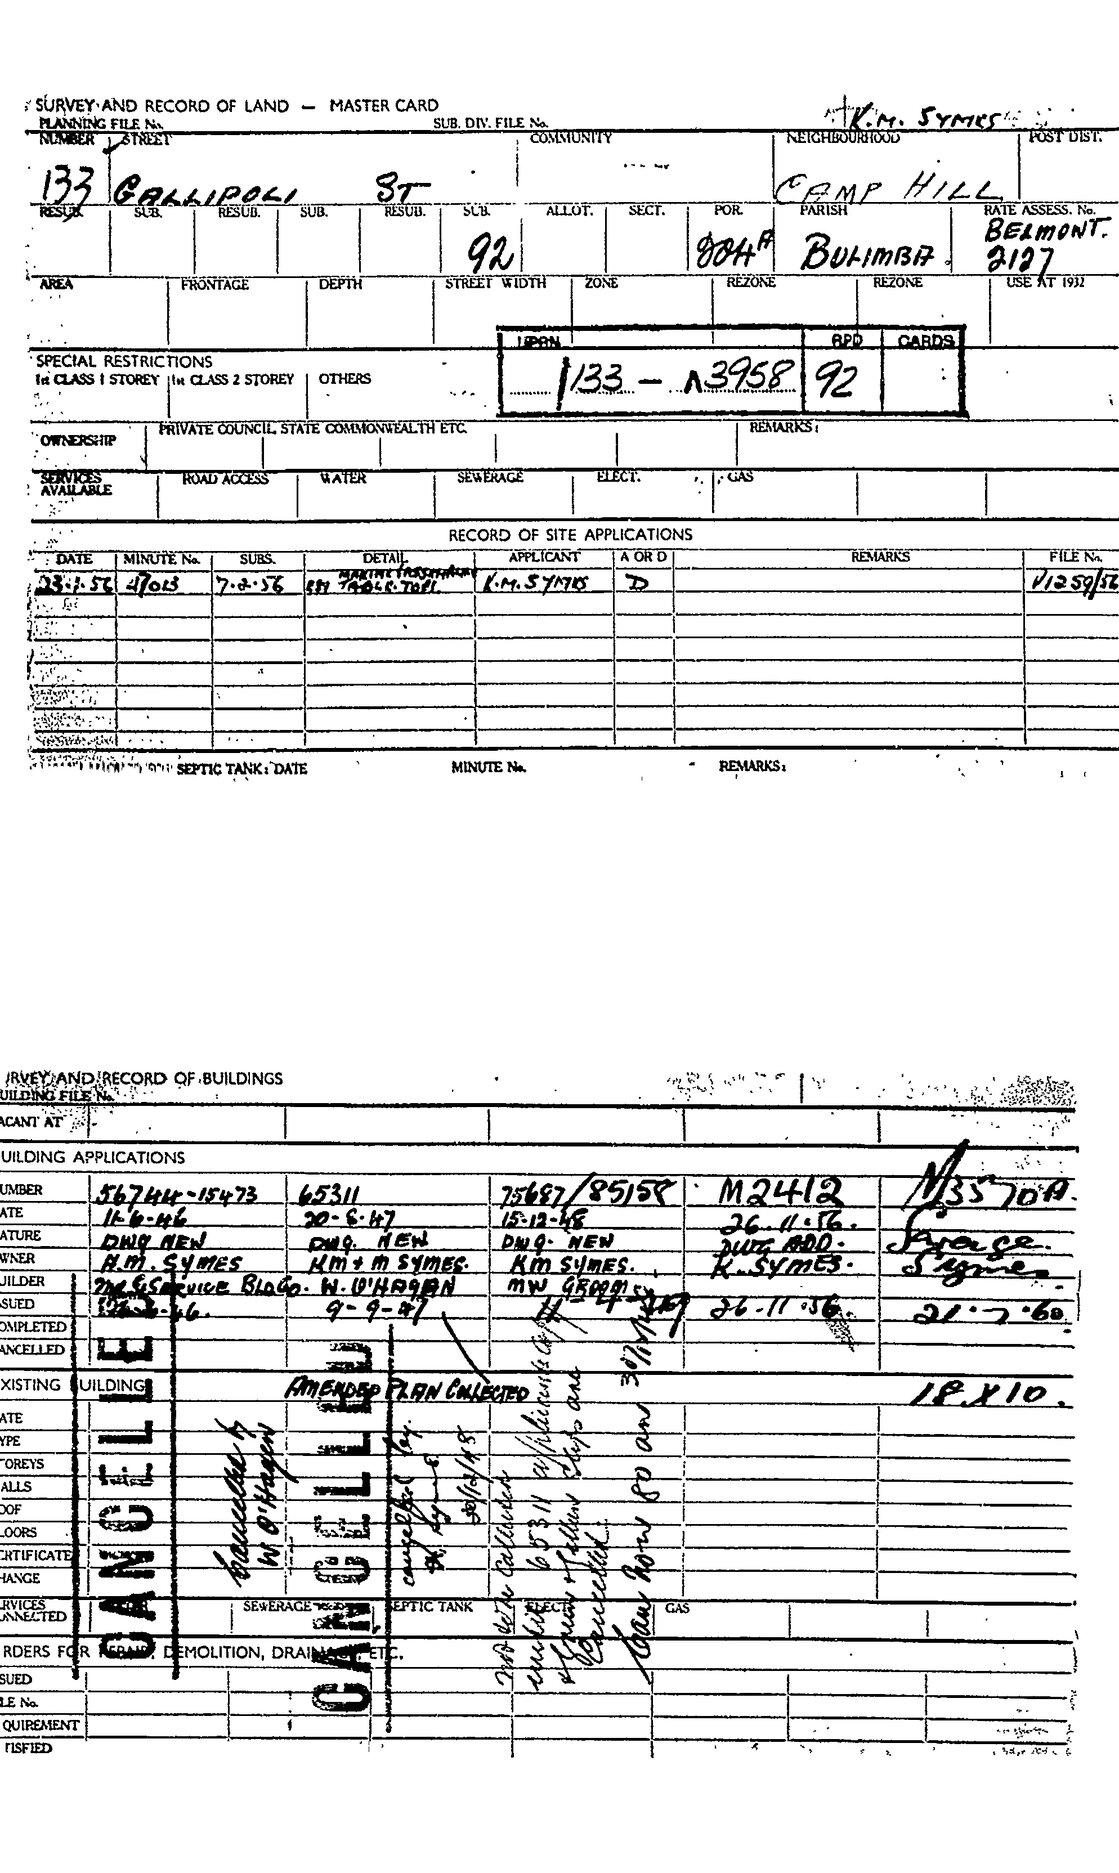 SURVEY AND RECORD OF LAND — MASTER CARD
K.M. SYMES
PLANNING FILE No. SUB. DIV. FILE No.
NUMBER STREET COMMUNITY NEIGHBOURHOOD POST DIST.
133 GALLIPOLI ST CAMP HILL
RESUB. SUB. RESUB. SUB. RESUB. SUB. ALLOT. SECT. POR. PARISH RATE ASSESS. No.
92 BULIMBA BELMONT.
2127
AREA FRONTAGE DEPTH STREET WIDTH ZONE REZONE REZONE USE AT 1932
UPRN RPD CARDS
133 - 3958 92
SPECIAL RESTRICTIONS
1st CLASS 1 STOREY 1st CLASS 2 STOREY OTHERS
OWNERSHIP PRIVATE COUNCIL STATE COMMONWEALTH ETC. REMARKS:
SERVICES AVAILABLE ROAD ACCESS WATER SEWERAGE ELECT. GAS
RECORD OF SITE APPLICATIONS
DATE MINUTE No. SUBS. DETAIL APPLICANT A OR D REMARKS FILE No.
7.2.56 TABLE TOPS. K.M. SYMES D
SEPTIC TANK: DATE MINUTE No. REMARKS:
RVEY AND RECORD OF BUILDINGS
UILDING FILE No.
ACANT AT
UILDING APPLICATIONS
UMBER 56744-15473 65311 75687/85158 M2412
ATE 11-6-46 15-12-48 26.11.56.
ATURE DWG NEW DWG. NEW DWG. NEW DWG ADD. Garage.
WNER SYMES KM & M SYMES. KM SYMES. K. SYMES. Symes
UILDER SERVICE BLDG. W. O'HAGAN MW GROOM
SUED 9-9-47 26-11.56 21.7.60
OMPLETED
ANCELLED
XISTING BUILDING AMENDED PLAN COLLECTED 18 X 10.
ATE
YPE
TOREYS
ALLS
OOF
LOORS
ERTIFICATE
HANGE
CANCELLED
Cancelled by
W O'Hagen
CANCELLED
cancelled by
30/12/48
65311
Cancelled.
RVICES
NNECTED SEWERAGE SEPTIC TANK ELECT. GAS
RDERS FOR REPAIR, DEMOLITION, DRAINAGE, ETC.
SUED
LE No.
QUIREMENT
TISFIED